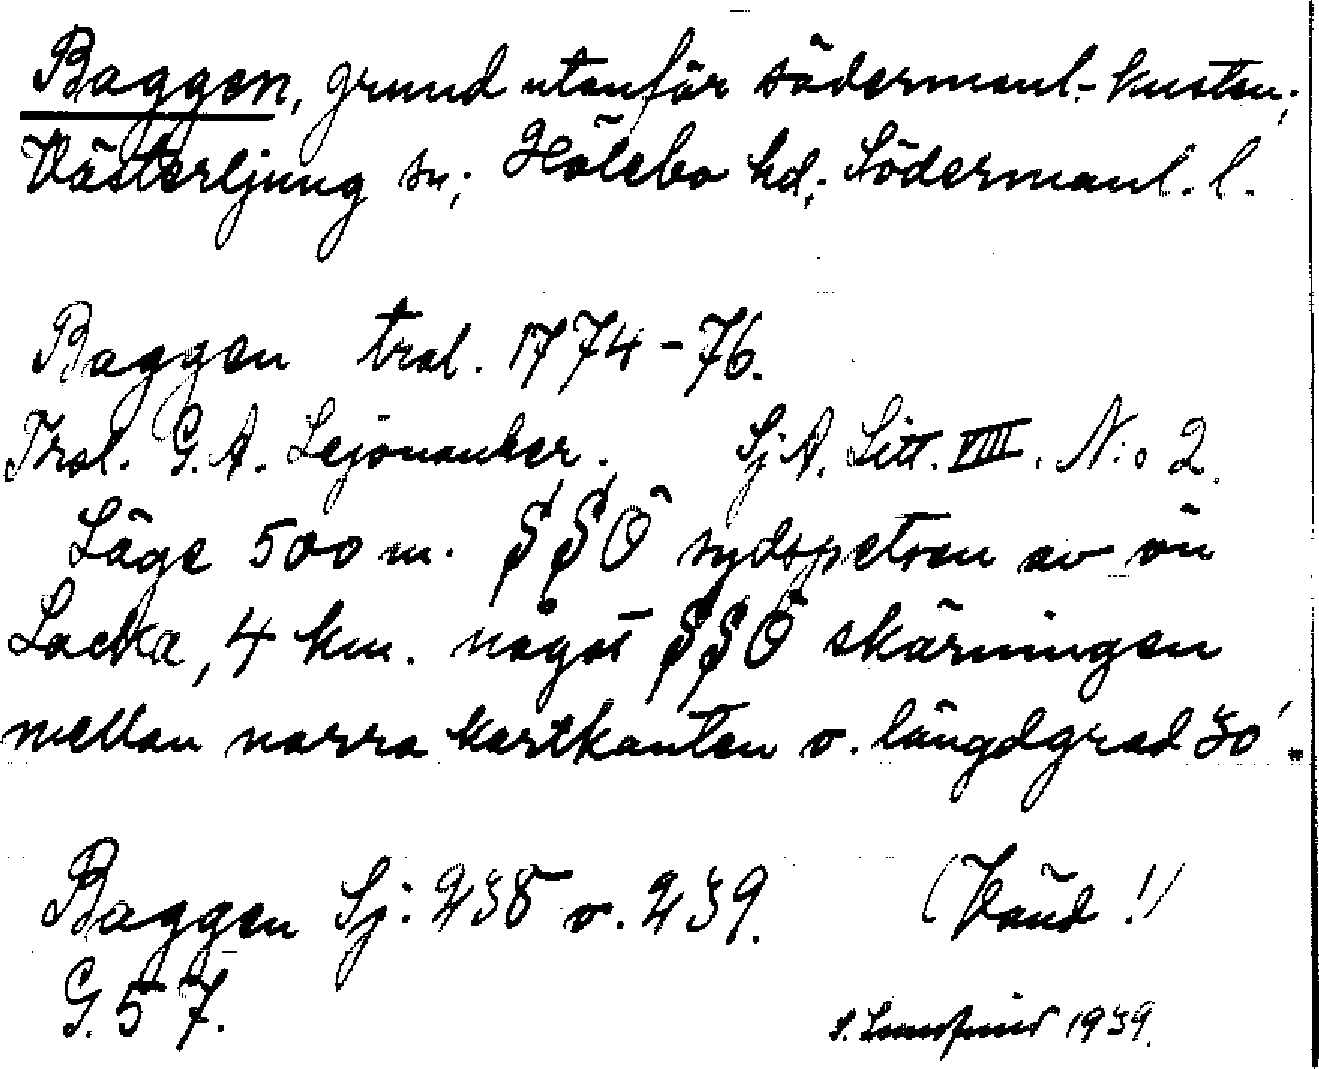 Baggen, grund utanför södermanl.-kusten;
Västerljung sn; Hölebo hd; Södermanl. l.
Baggen trol. 1774-76.
Trol. G. A. Lejonanker. Sj A. Litt. VIII. N:o 2.
Läge 500 m. SSÖ sydspetsen av ön
Locka, 4 km. något SSÖ skärningen
mellan norra kartkanten o. längdgrad 30'.
Baggen Sj: 238 o. 239. (Vänd!)
G. 57.
1939.